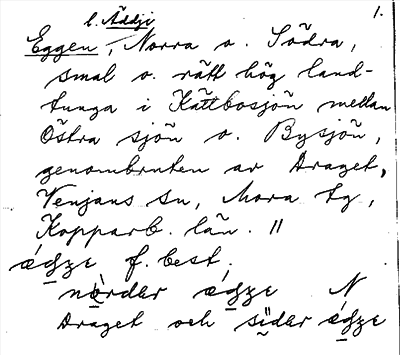 l. Äddji 1.
Eggen, Norra o. Södra,
smal o. rätt hög land-
tunga i Kättbosjön mellan
Östra sjön o. Bysjön,
genombruten av Draget,
Venjans sn, Mora tg,
Kopparb. län. ||
ægze f. best.
nòrdar ægze N
Draget och sïdar ægze